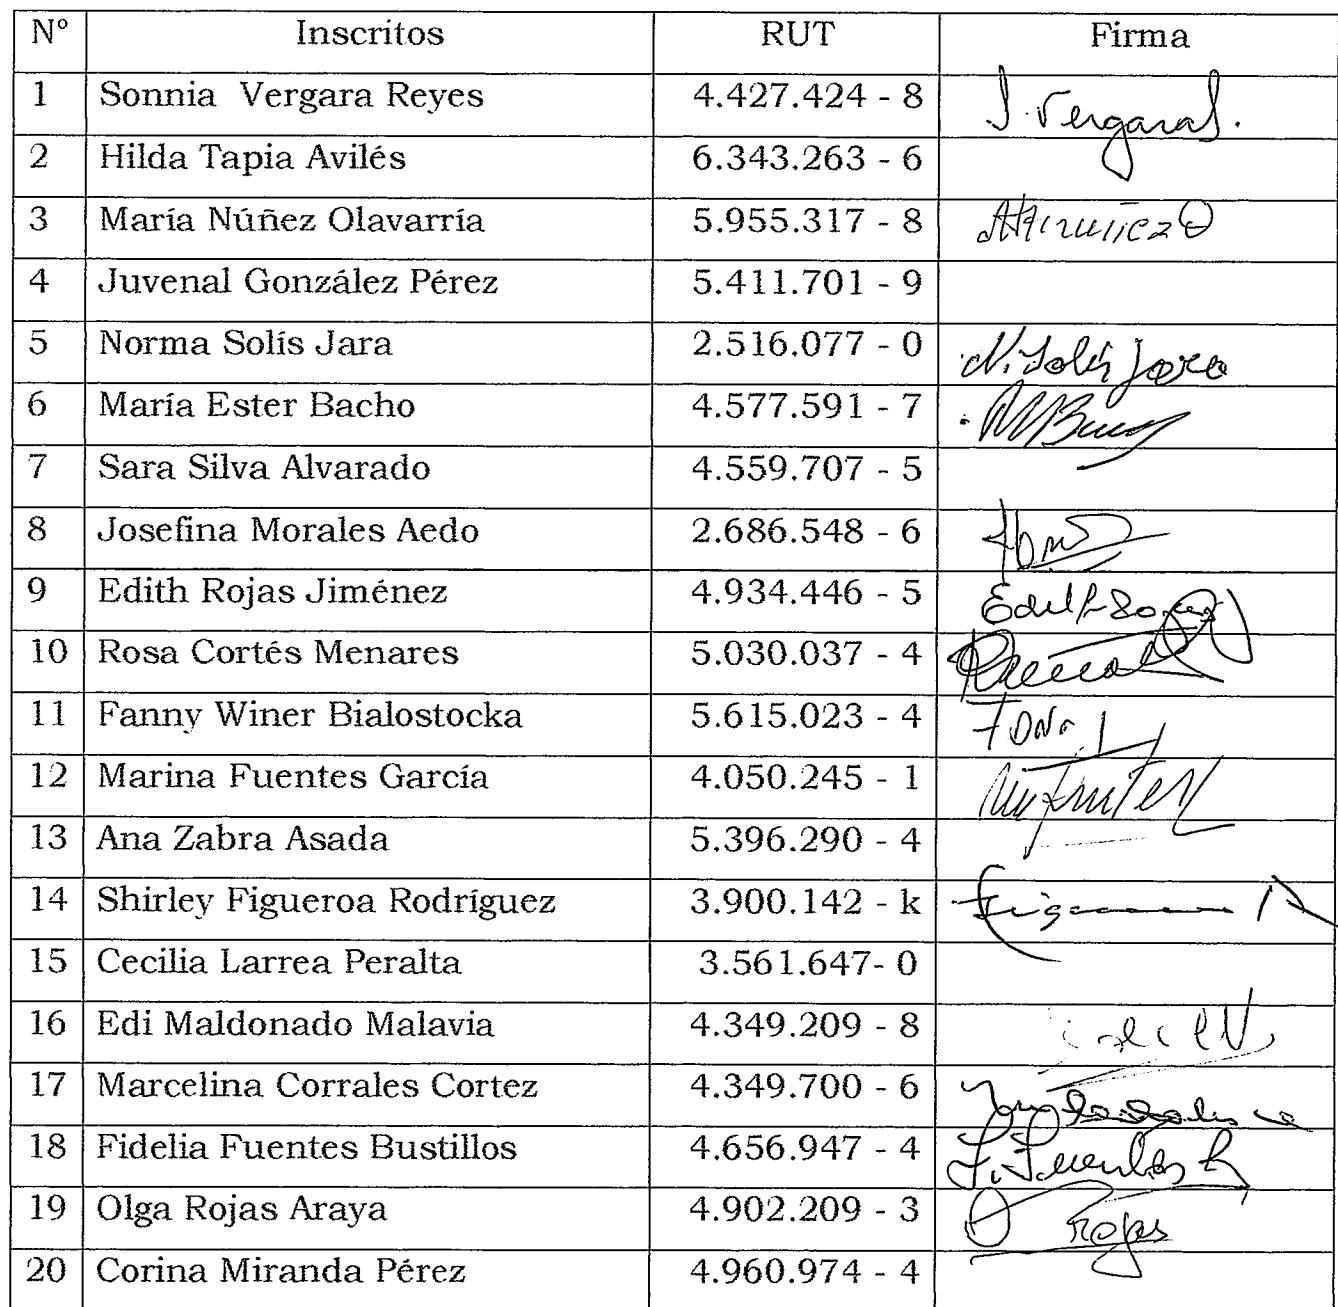 Nº Inscritos RUT Firma
1 Sonnia Vergara Reyes 4.427.424 - 8 S. Vergara
2 Hilda Tapia Avilés 6.343.263 - 6
3 María Núñez Olavarría 5.955.317 - 8
4 Juvenal González Pérez 5.411.701 - 9
5 Norma Solís Jara 2.516.077 - 0 N. Solís Jara
6 María Ester Bacho 4.577.591 - 7
7 Sara Silva Alvarado 4.559.707 - 5
8 Josefina Morales Aedo 2.686.548 - 6
9 Edith Rojas Jiménez 4.934.446 - 5
10 Rosa Cortés Menares 5.030.037 - 4
11 Fanny Winer Bialostocka 5.615.023 - 4
12 Marina Fuentes García 4.050.245 - 1
13 Ana Zabra Asada 5.396.290 - 4
14 Shirley Figueroa Rodríguez 3.900.142 - k
15 Cecilia Larrea Peralta 3.561.647- 0
16 Edi Maldonado Malavia 4.349.209 - 8
17 Marcelina Corrales Cortez 4.349.700 - 6
18 Fidelia Fuentes Bustillos 4.656.947 - 4 F. Fuentes B
19 Olga Rojas Araya 4.902.209 - 3 O Rojas
20 Corina Miranda Pérez 4.960.974 - 4